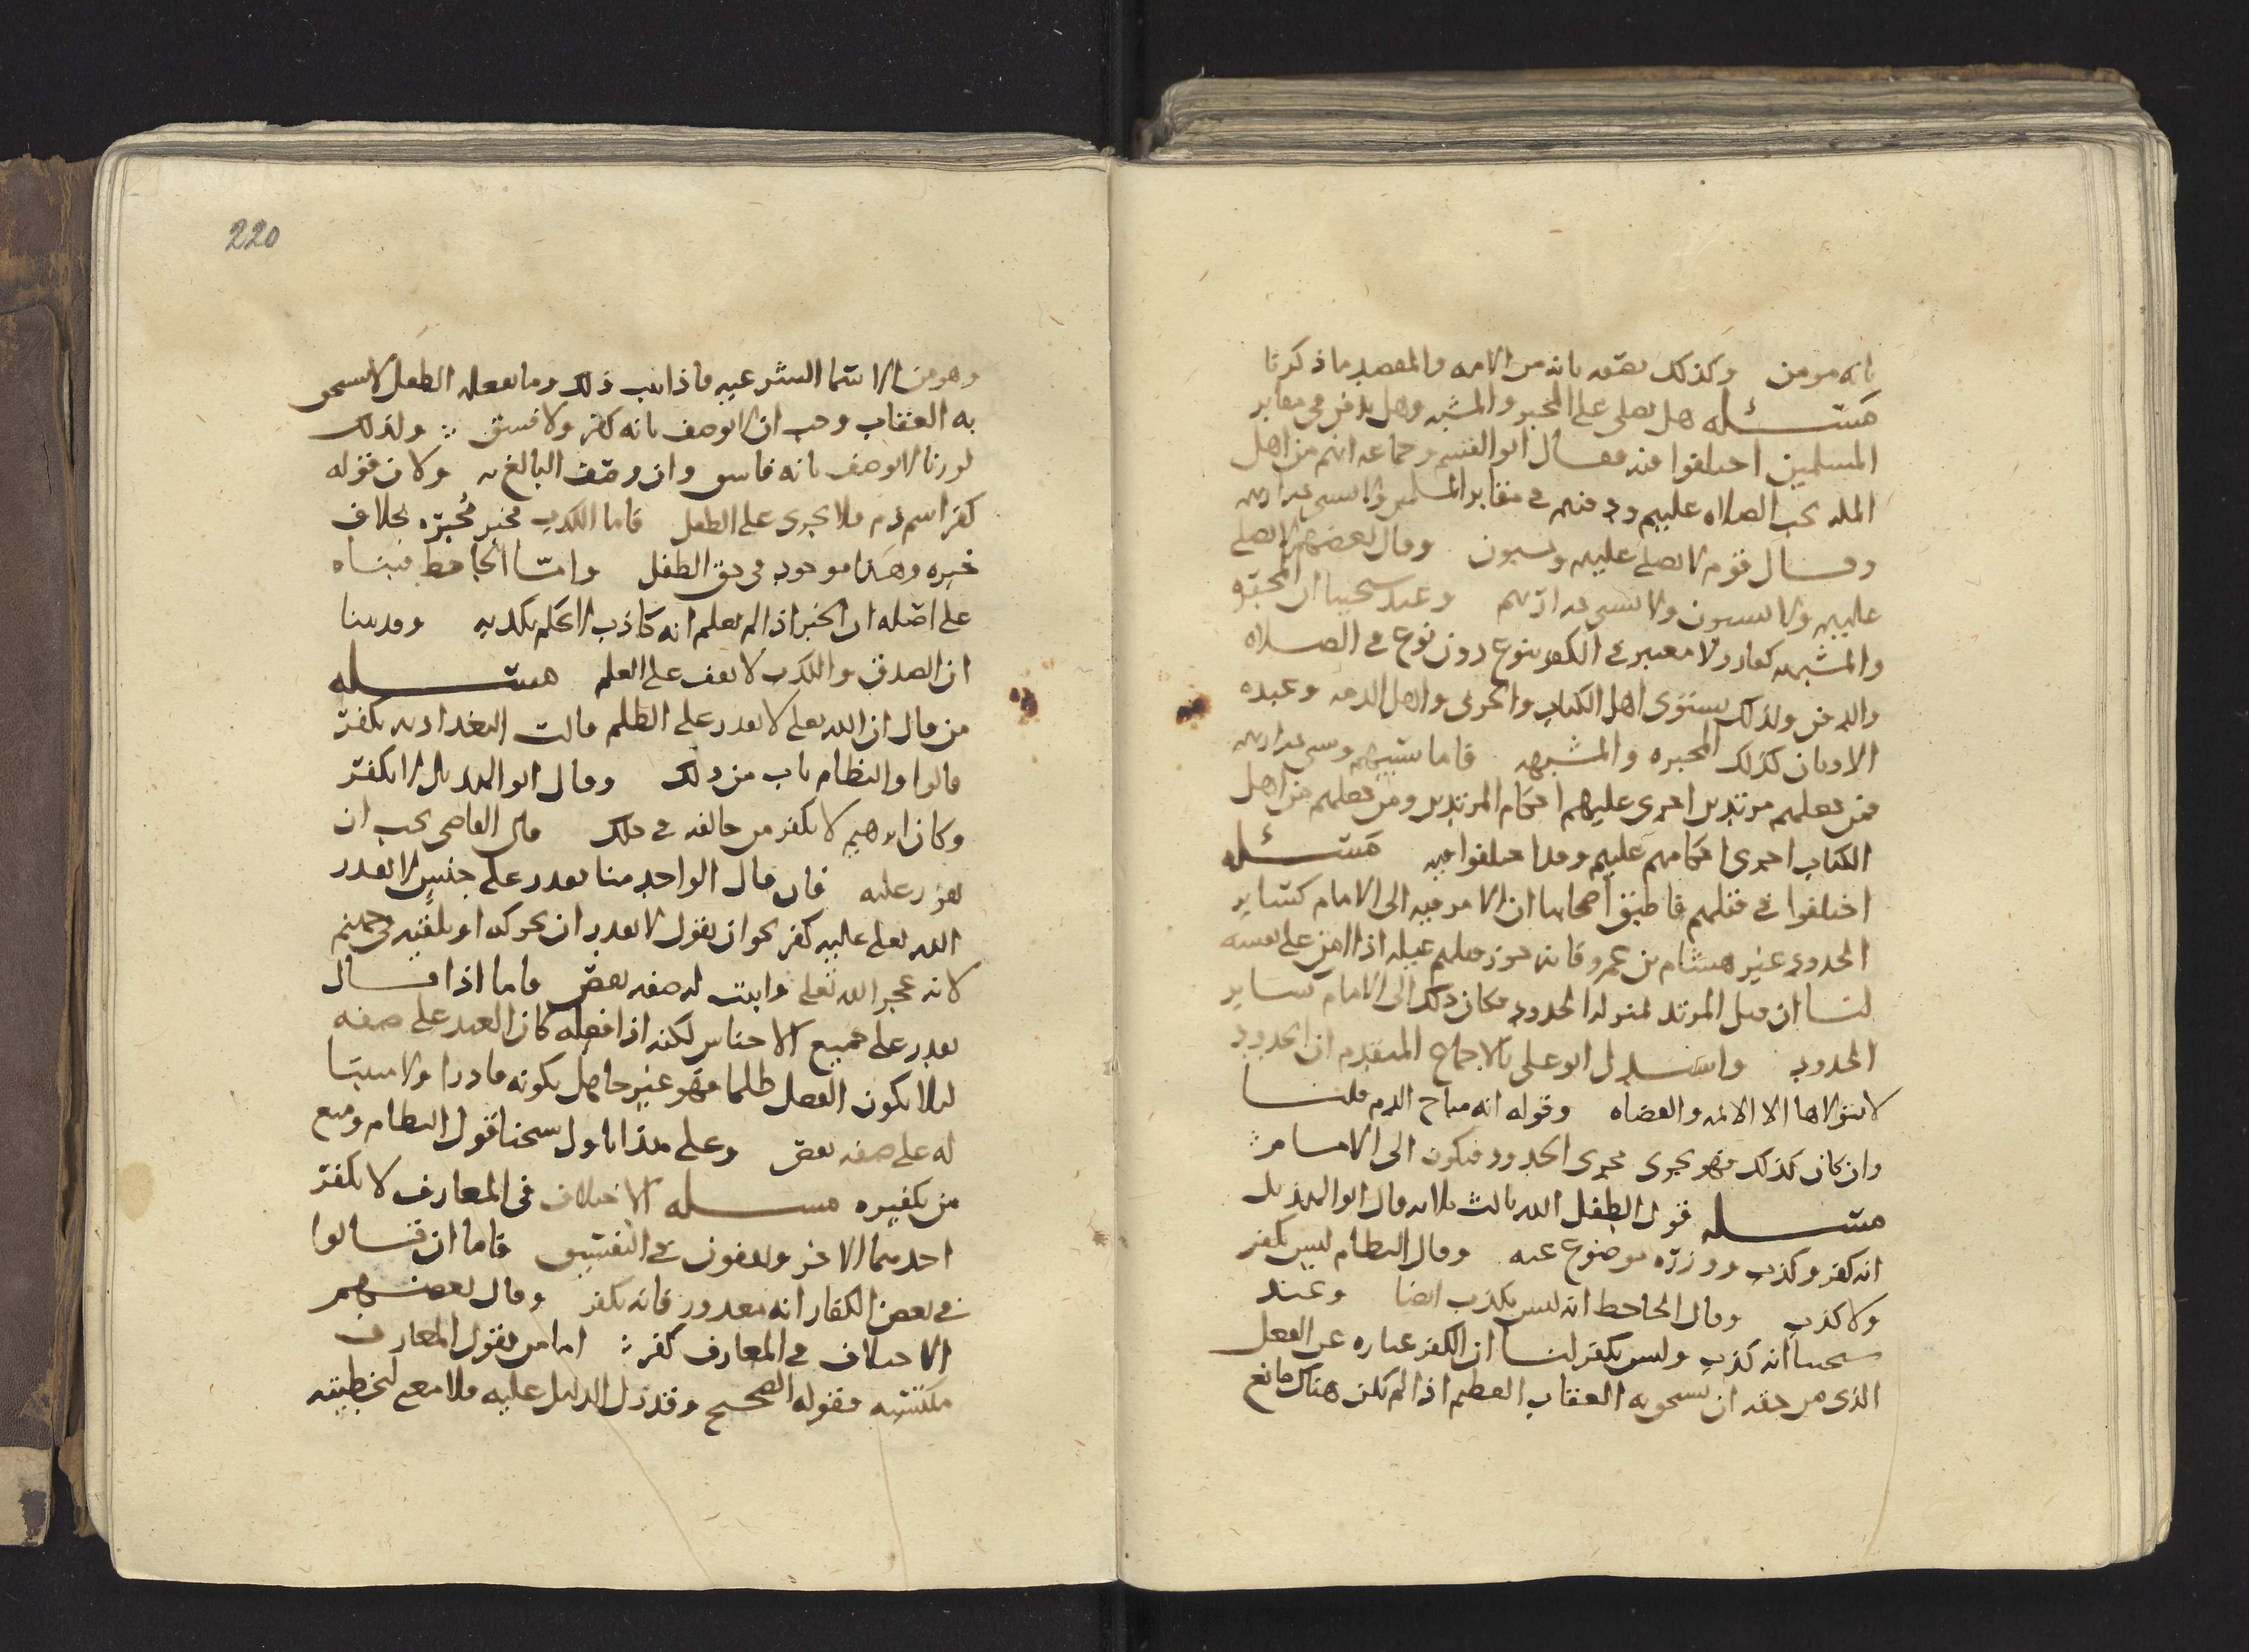 بانه مومن وكذلك نصفه بانه من الامه والمقصد ما ذكرنا
مسئله هل يصلى على المجبر والمشبه وهل يدفن في مقابر
المسلمين اختلفوا فيه فقال ابو القسم وجماعه انهم من اهل
المله يجب الصلاه عليهم ودفنهم في مقابر المسلمين ولا تسبى ذراريهم
وقال قوم لا يصلى عليهم ويسبون وقال بعضهم لا يصلى
عليهم ولا يسبون ولا تسبى ذراريهم وعند شيخنا ان المجبره
والمشبهه كفار ولا معتبر في الكفر بنوع دون نوع في الصلاه
والدفن ولذلك يستوى اهل الكتاب والحربى واهل الذمه وعبده
الاوثان كذلك المجبره والمشبهه فاما سبيهم وسبى ذراريهم
فمن جعلهم مرتدين اجرى عليهم احكام المرتدين ومن جعلهم من اهل
الكتاب اجرى احكامهم عليهم وقد اختلفوا فيه مسئله
اختلفوا في قتلهم فاطبق اصحابنا ان الامر فيه الى الامام كساير
الحدود غير هشام بن عمرو فانه جوز قتلهم غيله اذا امن على نفسه
لنا ان قتل المرتد بمنزله الحدود فكان ذلك الى الامام كساير
الحدود واستدل ابو على بالاجماع المتقدم ان الحدود
لا يتولاها الا الائمه والقضاه وقوله انه مباح الدم قلنا
وان كان كذلك فهو يجرى مجرى الحدود فيكون الى الامام
مسئله قول الطفل الله ثالث ثلاثه قال ابو الهذيل
انه كفر وكذب ووزره موضوع عنه وقال النظام ليس بكفر
ولا كذب وقال الجاحظ انه ليس بكذب ايضا وعند
شيخنا انه كذب وليس بكفر لنا ان الكفر عباره عن الفعل
الذى من حقه ان يستحق به العقاب العظيم اذا لم يكن هناك مانع
220
وهو من الاسما الشرعيه فاذا ثبت ذلك وما يفعله الطفل لا يستحق
به العقاب وجب ان لا يوصف بانه كفر ولا فسق ولذلك
لو زنا لا يوصف بانه فاسق وان وصف البالغ به ولان قوله
كفر اسم ذم فلا يجرى على الطفل فاما الكذب فخبر مخبره بخلاف
خبره وهذا موجود في حق الطفل واما الجاحظ فبناه
على اصله ان الخبر اذا لم يعلم انه كاذب لا يحكم بكذبه وقد بينا
ان الصدق والكذب لا يقف على العلم مسئله
من قال ان الله تعلى لا يقدر على الظلم قالت البغداديه يكفر
قالوا والنظام تاب من ذلك وقال ابو الهذيل لا يكفر
وكان ابرهيم لا يكفر من خالفه في ذلك قال القاضى يجب ان
يعزر عليه فان قال الواحد منا يقدر على جنس لا يقدر
الله تعلى عليه كفر نحو ان يقول لا يقدر ان يحركه او يلقيه في جهنم
لانه عجز الله تعلى واثبت له صفه نقص فاما اذا قال
يقدر على جميع الاجناس لكنه اذا فعله كان العبد على صفه
ليلا يكون الفعل ظلما فهو غير جاهل بكونه قادرا ولا مثبتا
له على صفه نقص وعلى هذا تاول شيخنا قول النظام ومنع
من تكفيره مسئله الاختلاف في المعارف لا يكفر
احدهما الاخر ويقفون في التفسيق فاما ان قالوا
في بعض الكفار انه معذور فانه يكفر وقال بعضهم
الاختلاف في المعارف كفر اما من يقول المعارف
مكتسبه فقوله الصحيح وقد دل الدليل عليه فلا معنى لتخطيته